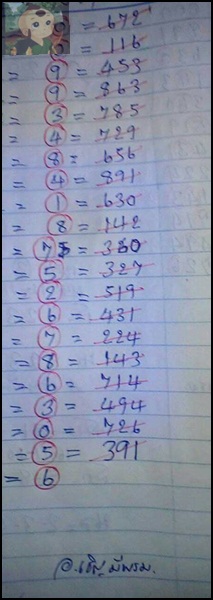 = 672
= 116
= 9 = 453
= 9 = 863
= 3 = 785
= 4 = 729
= 8 = 656
= 4 = 891
= 1 = 630
= 8 = 142
= 7 = 360
= 5 = 327
= 2 = 519
= 6 = 431
= 7 = 224
= 8 = 143
= 6 = 714
= 3 = 494
= 0 = 726
= 5 = 391
= 6